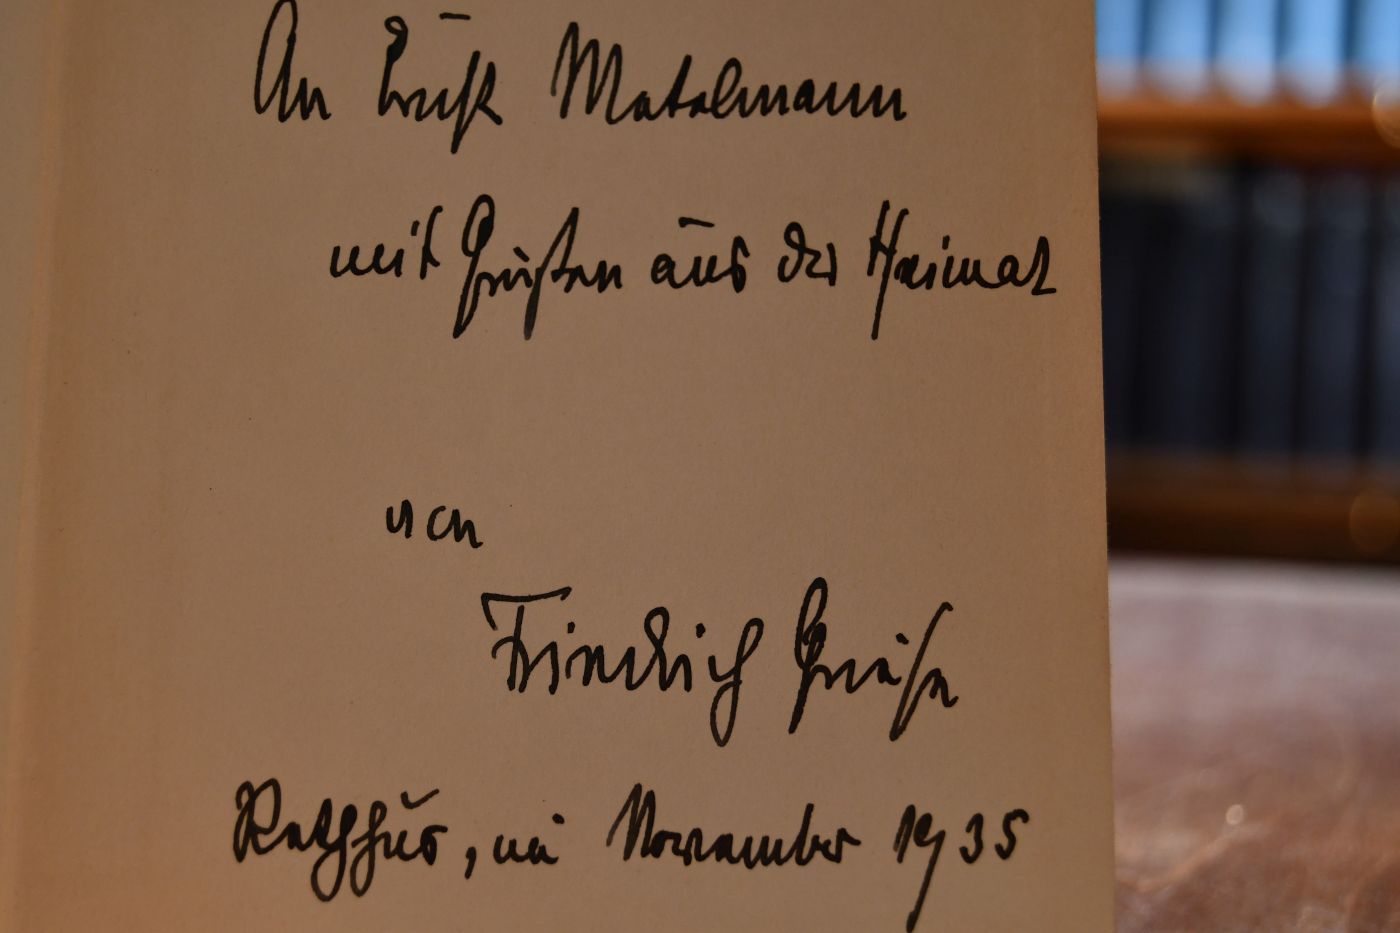 An Ernst Metelmann
mit Grüßen aus der Heimat
von
Friedrich Griese
Rethhus, im November 1935